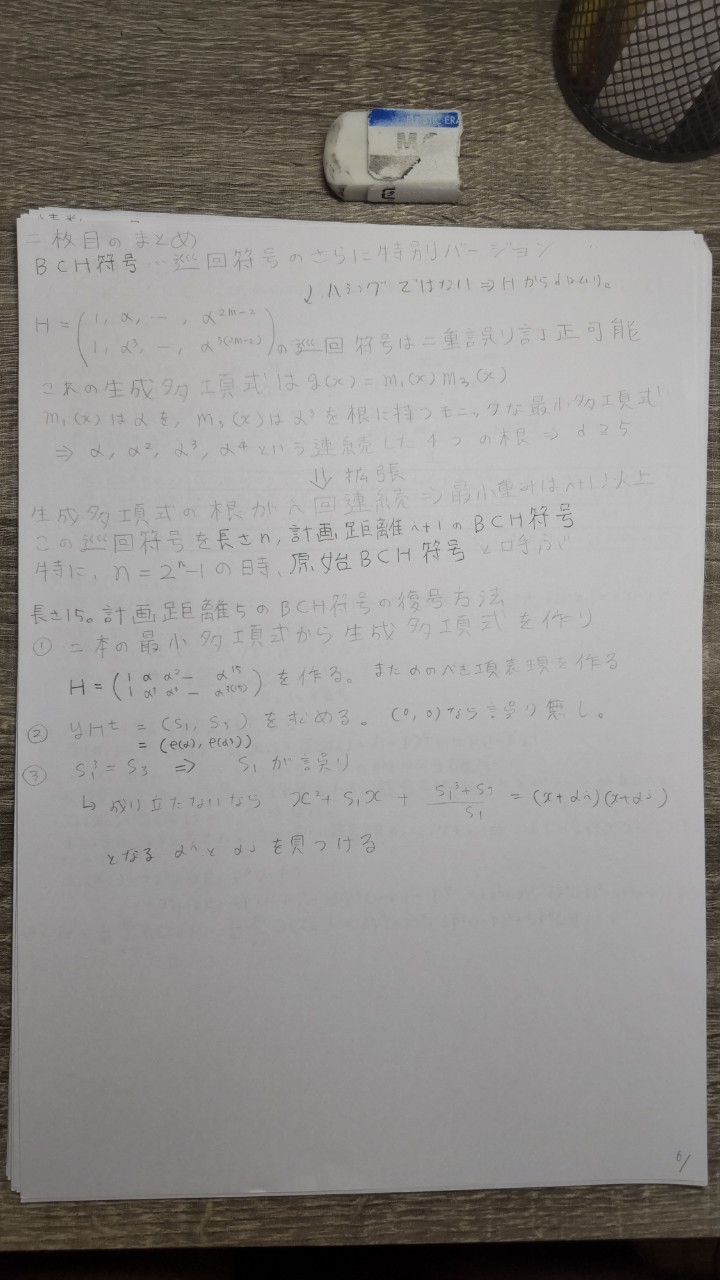 PLASTIC ERA
M
E
二枚目のまとめ
BCH符号…巡回符号のさらに特別バージョン
↓ハミングではない⇒Hからdはムリ。
H = (1, α, …, α^{2m-2}
1, α³, …, α^{3(2m-2)}) の巡回符号は二重誤り訂正可能
これの生成多項式はg(x) = m₁(x) m₃(x)
m₁(x)はαを, m₃(x)はα³を根に持つモニックな最小多項式
⇒ α, α², α³, α⁴という連続した4つの根⇒ d≧5
⇓ 拡張
生成多項式の根がλ回連続⇒最小重みはλ+1以上
この巡回符号を長さn, 計画距離λ+1のBCH符号
特に, n = 2^n-1の時, 原始BCH符号と呼ぶ
長さ15。計画距離5のBCH符号の復号方法
① 二本の最小多項式から生成多項式を作り
H = (1 α α² – α^{15}
1 α³) を作る。またαのべき項表現を作る
② yH^t = (S₁, S₃) を求める。 (0, 0)なら誤り無し。
= (e(α), e(α³))
③ S₁³ = S₃ ⇒ S₁が誤り
↳ 成り立たないなら x² + S₁x + (S₁³+S₃)/S₁ = (x+α^i)(x+α^j)
となる α^i と α^j を見つける
6/